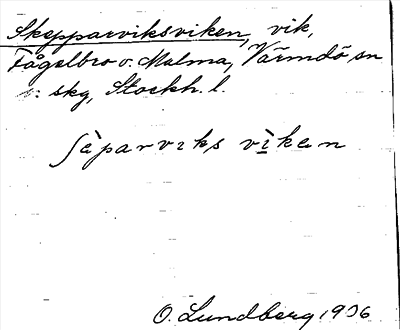 Skepparviksviken, vik,
Fågelbro o. Malma, Värmdö sn
o. skg, Stockh. l.
ʃèparvıks vìken
O. Lundberg 1936